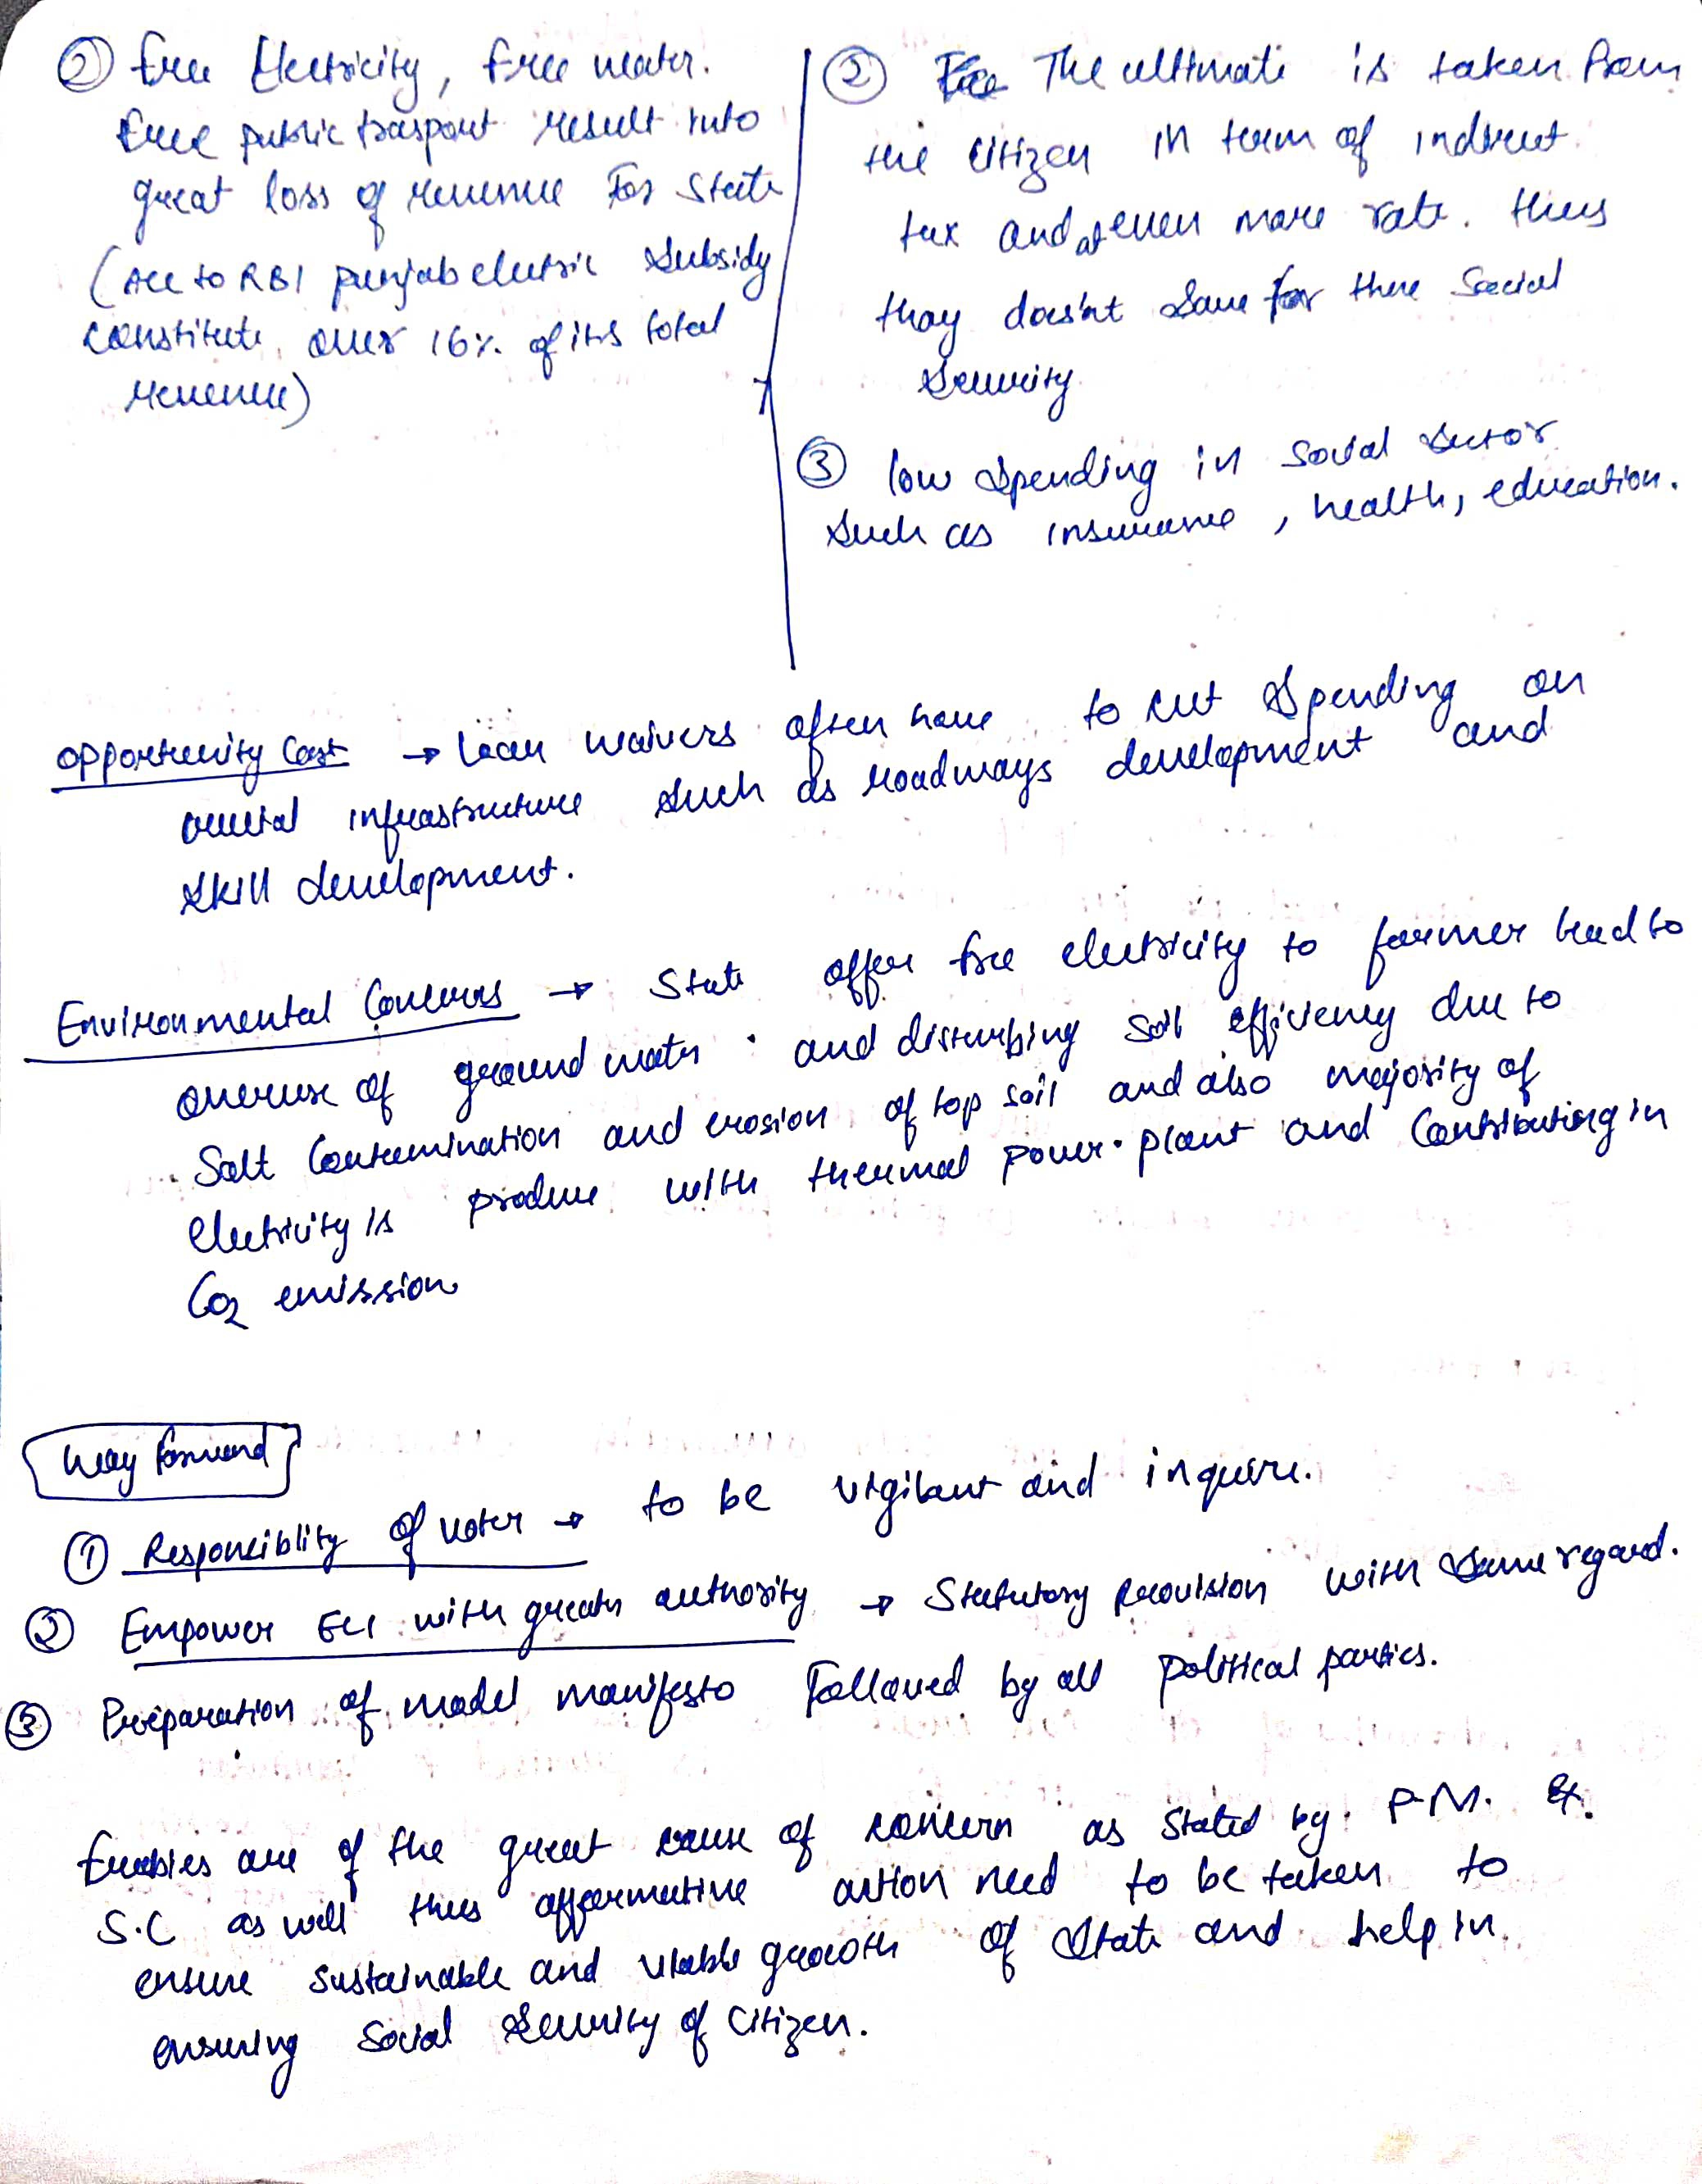 ② free Electricity, free water.
free public trasport result into
great loss of revenue for State
(Acc to RBI punjab electric subsidy
constitute over 16% of its total
revenue)
② The ultimate is taken from
the citizen in term of indirect
tax and at even more rate. thus
thay does'nt save for there Social
Security
③ low spending in Social sector
such as insurance, health, education.
Opportunity Cost → loan waivers often have to cut spending on
crucial infrastructure such as roadways development and
skill development.
Environmental Concerns → State offer free electricity to farmer lead to
overuse of ground water and disturbing soil efficiency due to
Salt Contamination and erosion of top soil and also majority of
electricity is produce with thermal power plant and Contributing in
CO2 emission
Way forward
① Responciblity of voter → to be vigilant and inquire.
② Empower ECI with greater authority → Statutory provision with same regard.
③ Preparation of model manifesto followed by all political parties.
freebies are of the great cause of concern as stated by P.M. &
S.C as well thus affermative action need to be taken to
ensure sustainable and viable growth of State and help in
ensuring Social Security of Citizen.